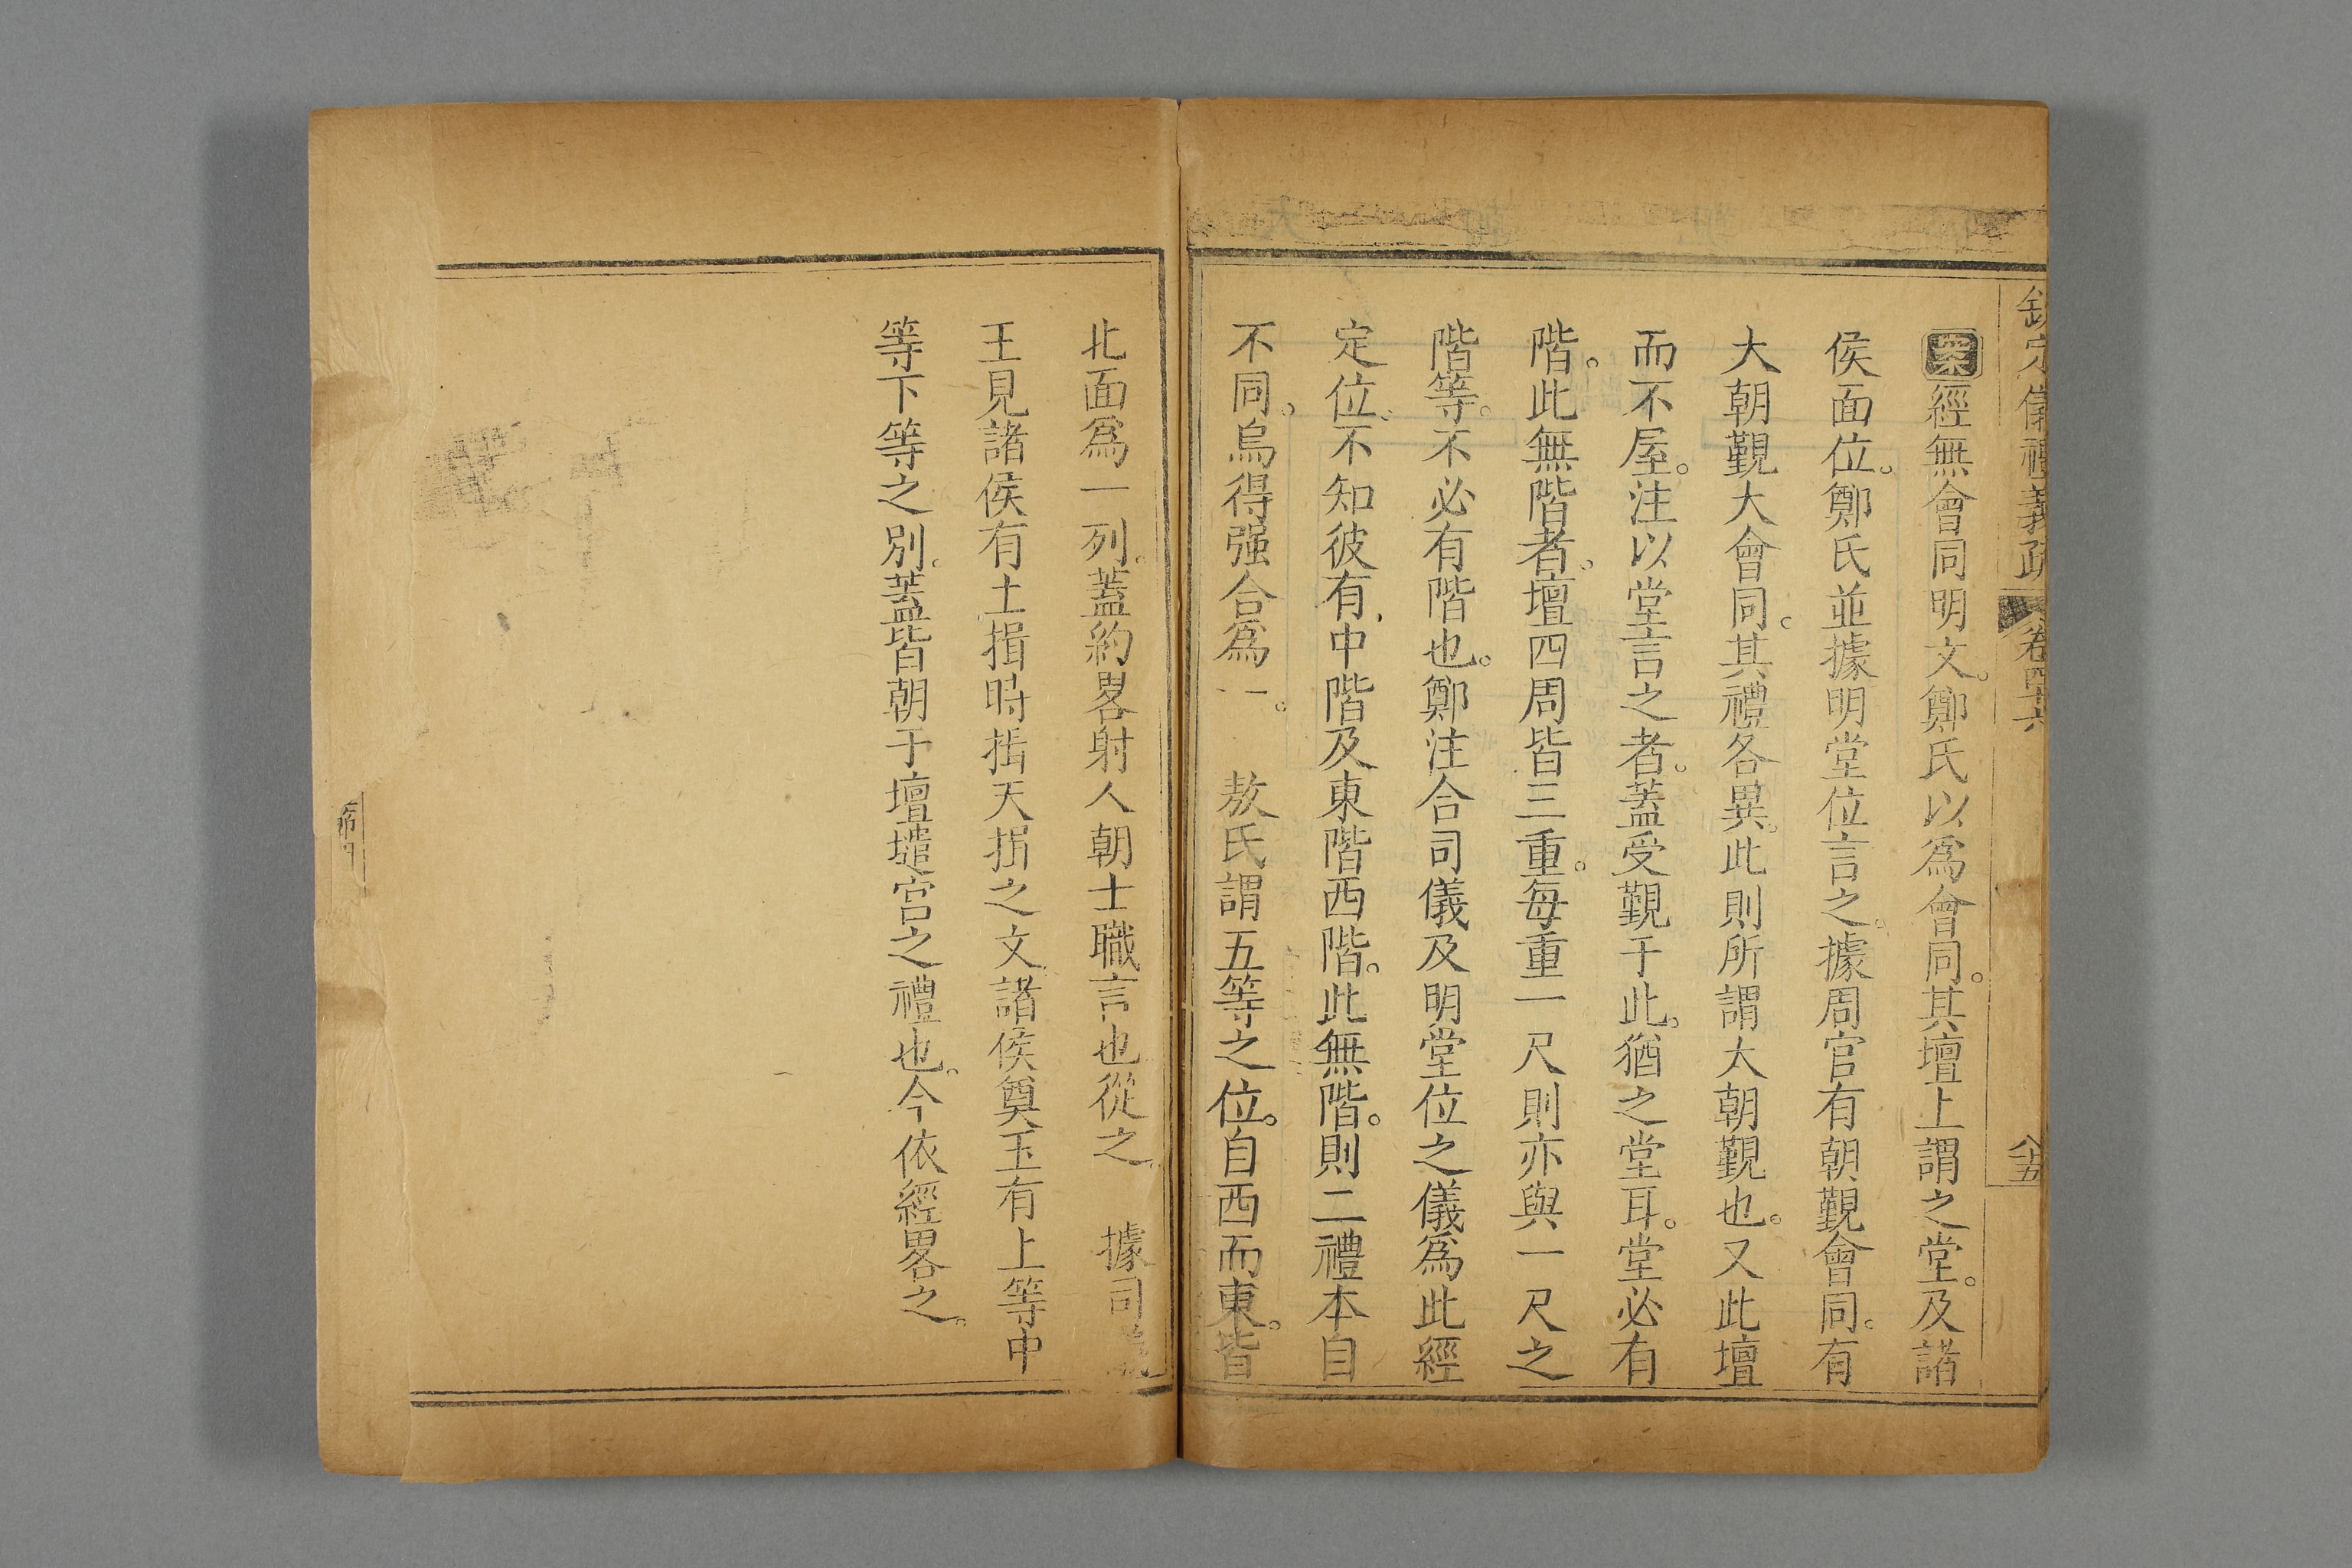 欽定儀禮義疏 卷四十六 八五
案經無會同明文。鄭氏以為會同。其壇上謂之堂。及諸
侯面位。鄭氏並據明堂位言之。據周官有朝覲會同。有
大朝覲大會同。其禮各異。此則所謂大朝覲也。又此壇
而不屋。注以堂言之者。蓋受覲于此。猶之堂耳。堂必有
階。此無階者。壇四周皆三重。每重一尺則亦與一尺之
階等。不必有階也。鄭注合司儀及明堂位之儀爲此經
定位。不知彼有中階及東階西階。此無階。則二禮本自
不同。烏得强合爲一。 敖氏謂五等之位。自西而東。皆
北面爲一列。蓋約畧射人朝士職言也從之 據司
王見諸侯有土揖時揖天揖之文諸侯奠玉有上等中
等下等之別。蓋皆朝于壇壝宮之禮也。今依經畧之。